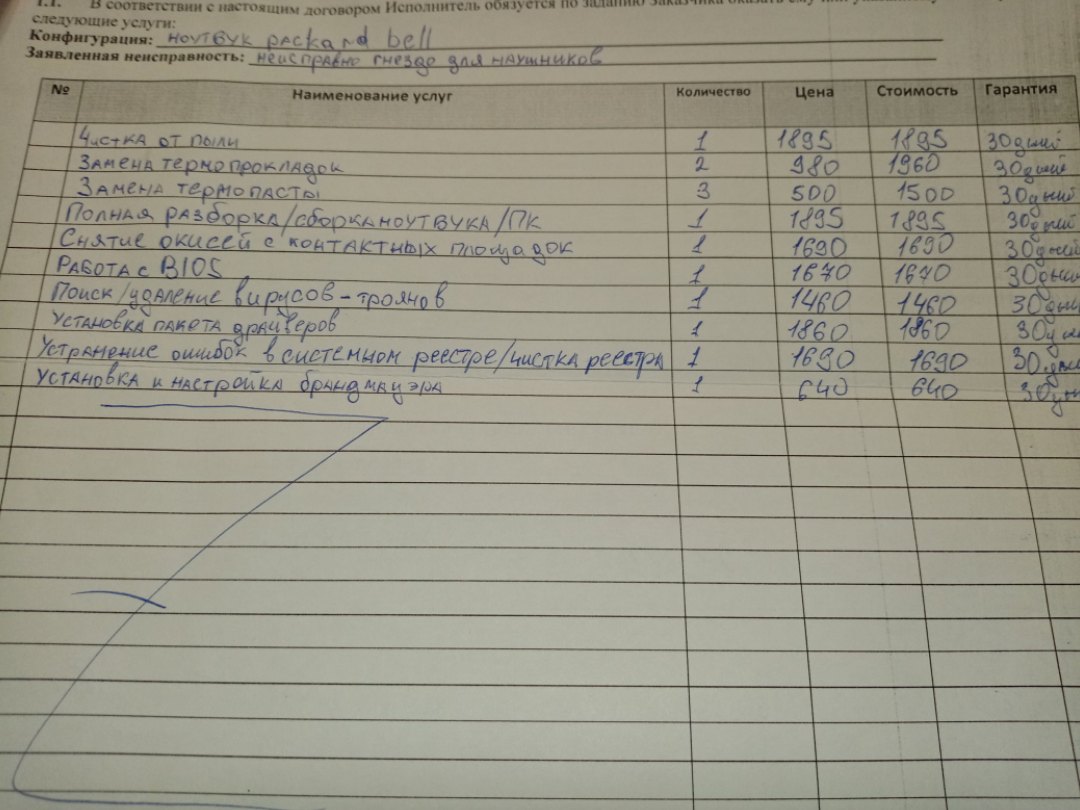 1.1. В соответствии с настоящим договором Исполнитель обязуется по заданию Заказчика оказать ему или
следующие услуги:
Конфигурация: ноутбук packard bell
Заявленная неисправность: неисправно гнездо для наушников
№ Наименование услуг Количество Цена Стоимость Гарантия
Чистка от пыли 1 1895 1895 30 дней
Замена термопрокладок 2 980 1960 30 дней
Замена термопасты 3 500 1500 30 дней
Полная разборка/сборка ноутбука/ПК 1 1895 1895 30 дней
Снятие окисей с контактных площадок 1 1690 1690 30 дней
Работа с BIOS 1 1670 1670 30 дний
Поиск/удаление вирусов-троянов 1 1460 1460 30 дны
Установка пакета драйверов 1 1860 1860 30
Устранение ошибок в системном реестре/чистка реестра 1 1690 1690 30
Установка и настройка брандмауэра 1 640 640 30